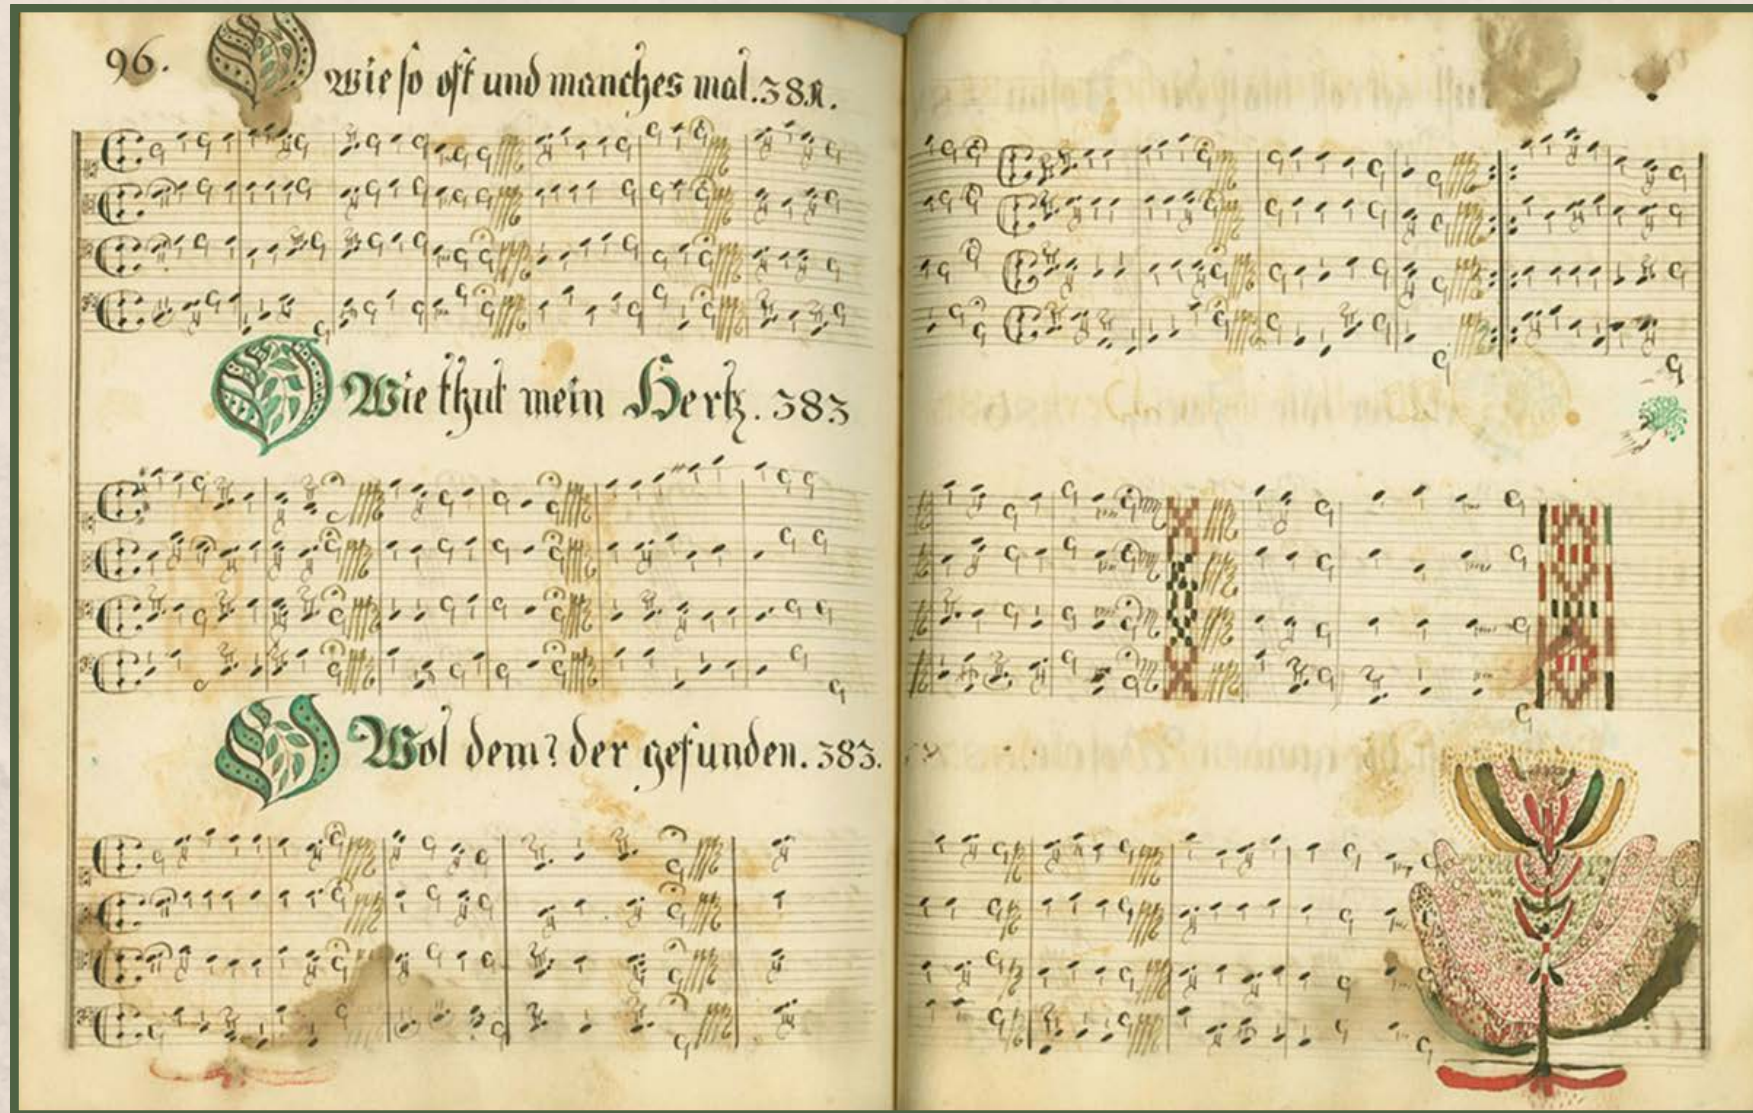 96.
Wie so oft und manches mal. 382.
Wie thut mein Hertz. 383
Wol dem? der gefunden. 383.